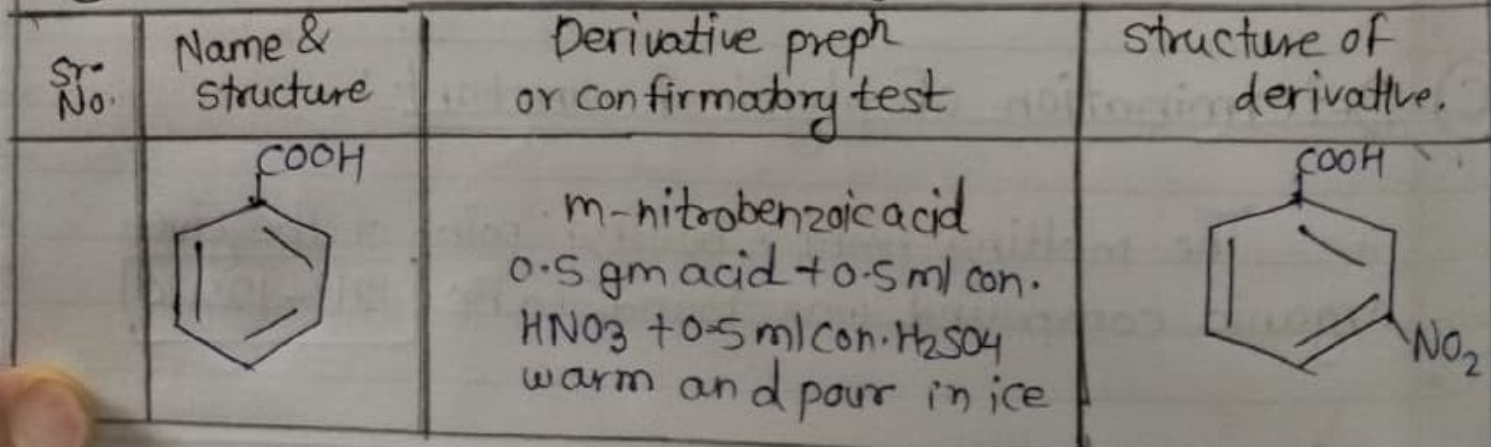 Sr.
No.
Name &
structure
Derivative preph
or confirmatory test
structure of
derivative.
COOH
m-nitrobenzoic acid
0.5 gm acid + 0.5 ml con.
HNO3 + 0.5 ml con. H2SO4
warm and pour in ice
COOH
NO2